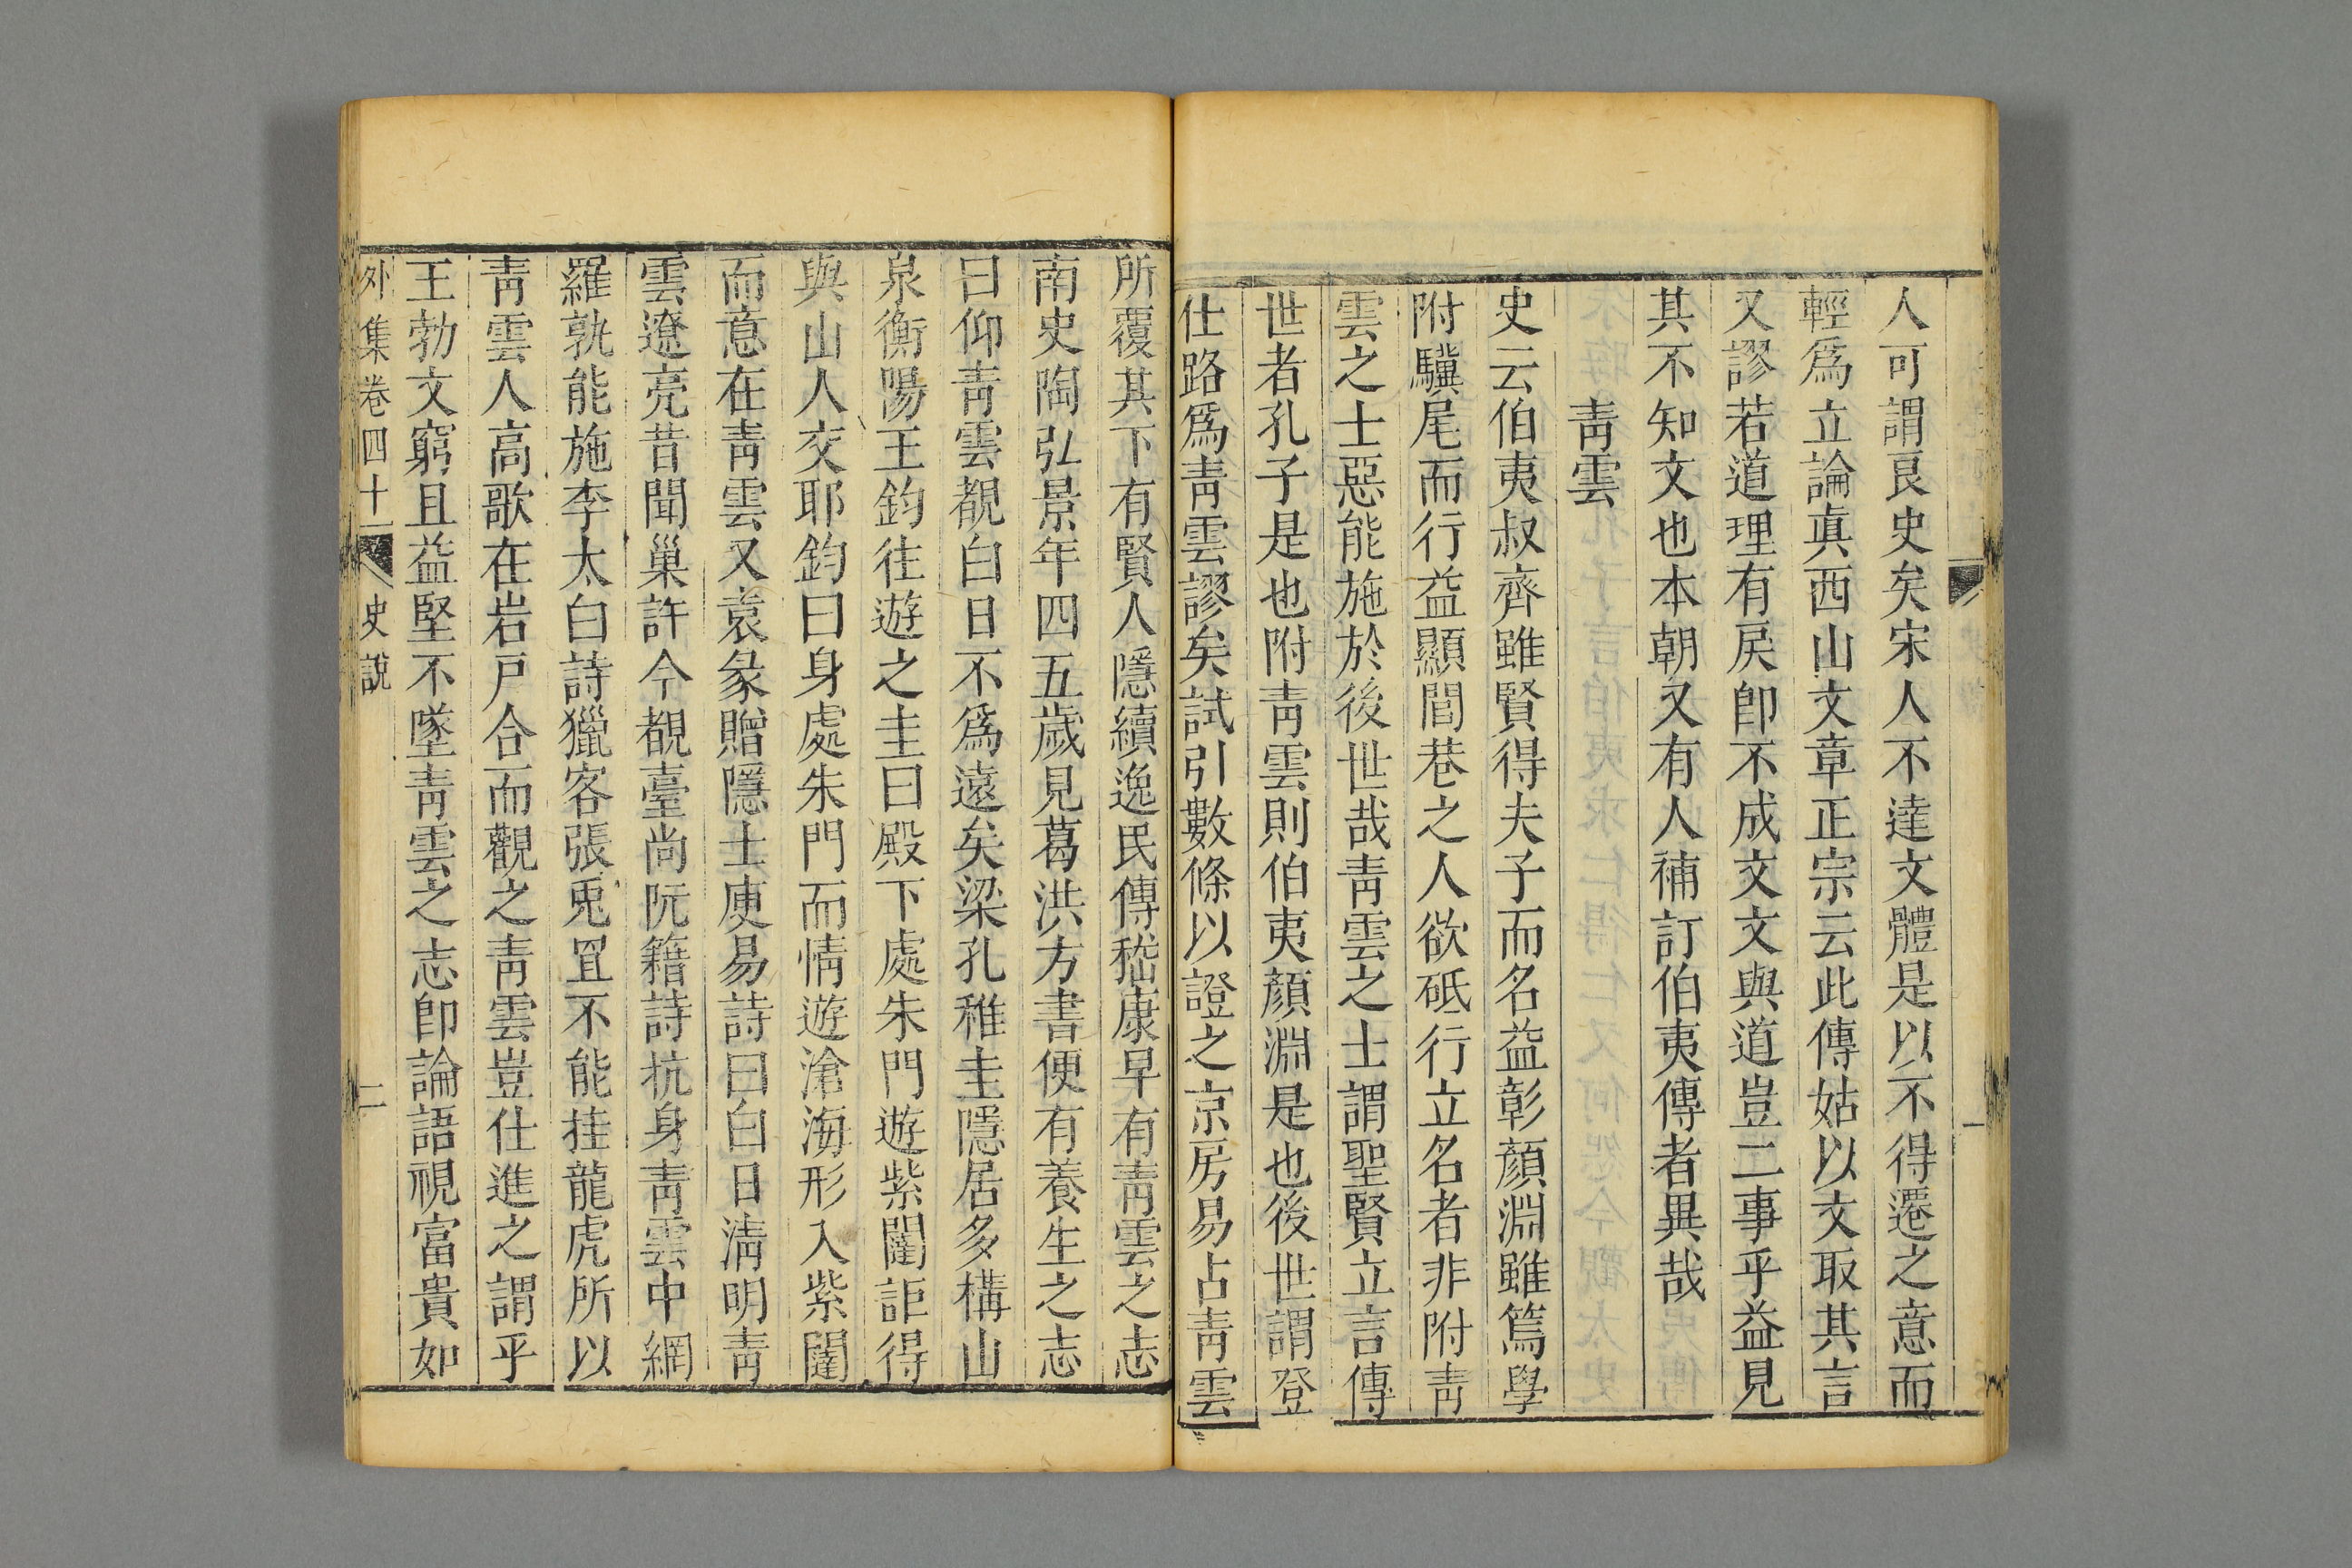 人可謂良史矣宋人不達文體是以不得遷之意而
輕爲立論眞西山文章正宗云此傳姑以文取其言
又謬若道理有戾卽不成文文與道豈二事乎益見
其不知文也本朝又有人補訂伯夷傳者異哉
靑雲
史云伯夷叔齊雖賢得夫子而名益彰顏淵雖篤學
附驥尾而行益顯閭巷之人欲砥行立名者非附靑
雲之士惡能施於後世哉靑雲之士謂聖賢立言傳
世者孔子是也附靑雲則伯夷顏淵是也後世謂登
仕路爲靑雲謬矣試引數條以證之京房易占靑雲
所覆其下有賢人隱續逸民傳嵇康早有靑雲之志
南史陶弘景年四五歲見葛洪方書便有養生之志
曰仰靑雲覩白日不爲遠矣梁孔稚圭隱居多構山
泉衡陽王鈞往遊之圭曰殿下處朱門遊紫闥詎得
與山人交耶鈞曰身處朱門而情遊滄海形入紫闥
而意在靑雲又袁彖贈隱士庾易詩曰白日淸明靑
雲遼亮昔聞巢許今覩臺尙阮籍詩抗身靑雲中網
羅孰能施李太白詩獵客張兎罝不能挂龍虎所以
靑雲人高歌在岩戶合而觀之靑雲豈仕進之謂乎
王勃文窮且益堅不墜靑雲之志卽論語視富貴如
外集卷四十 史說 二
一